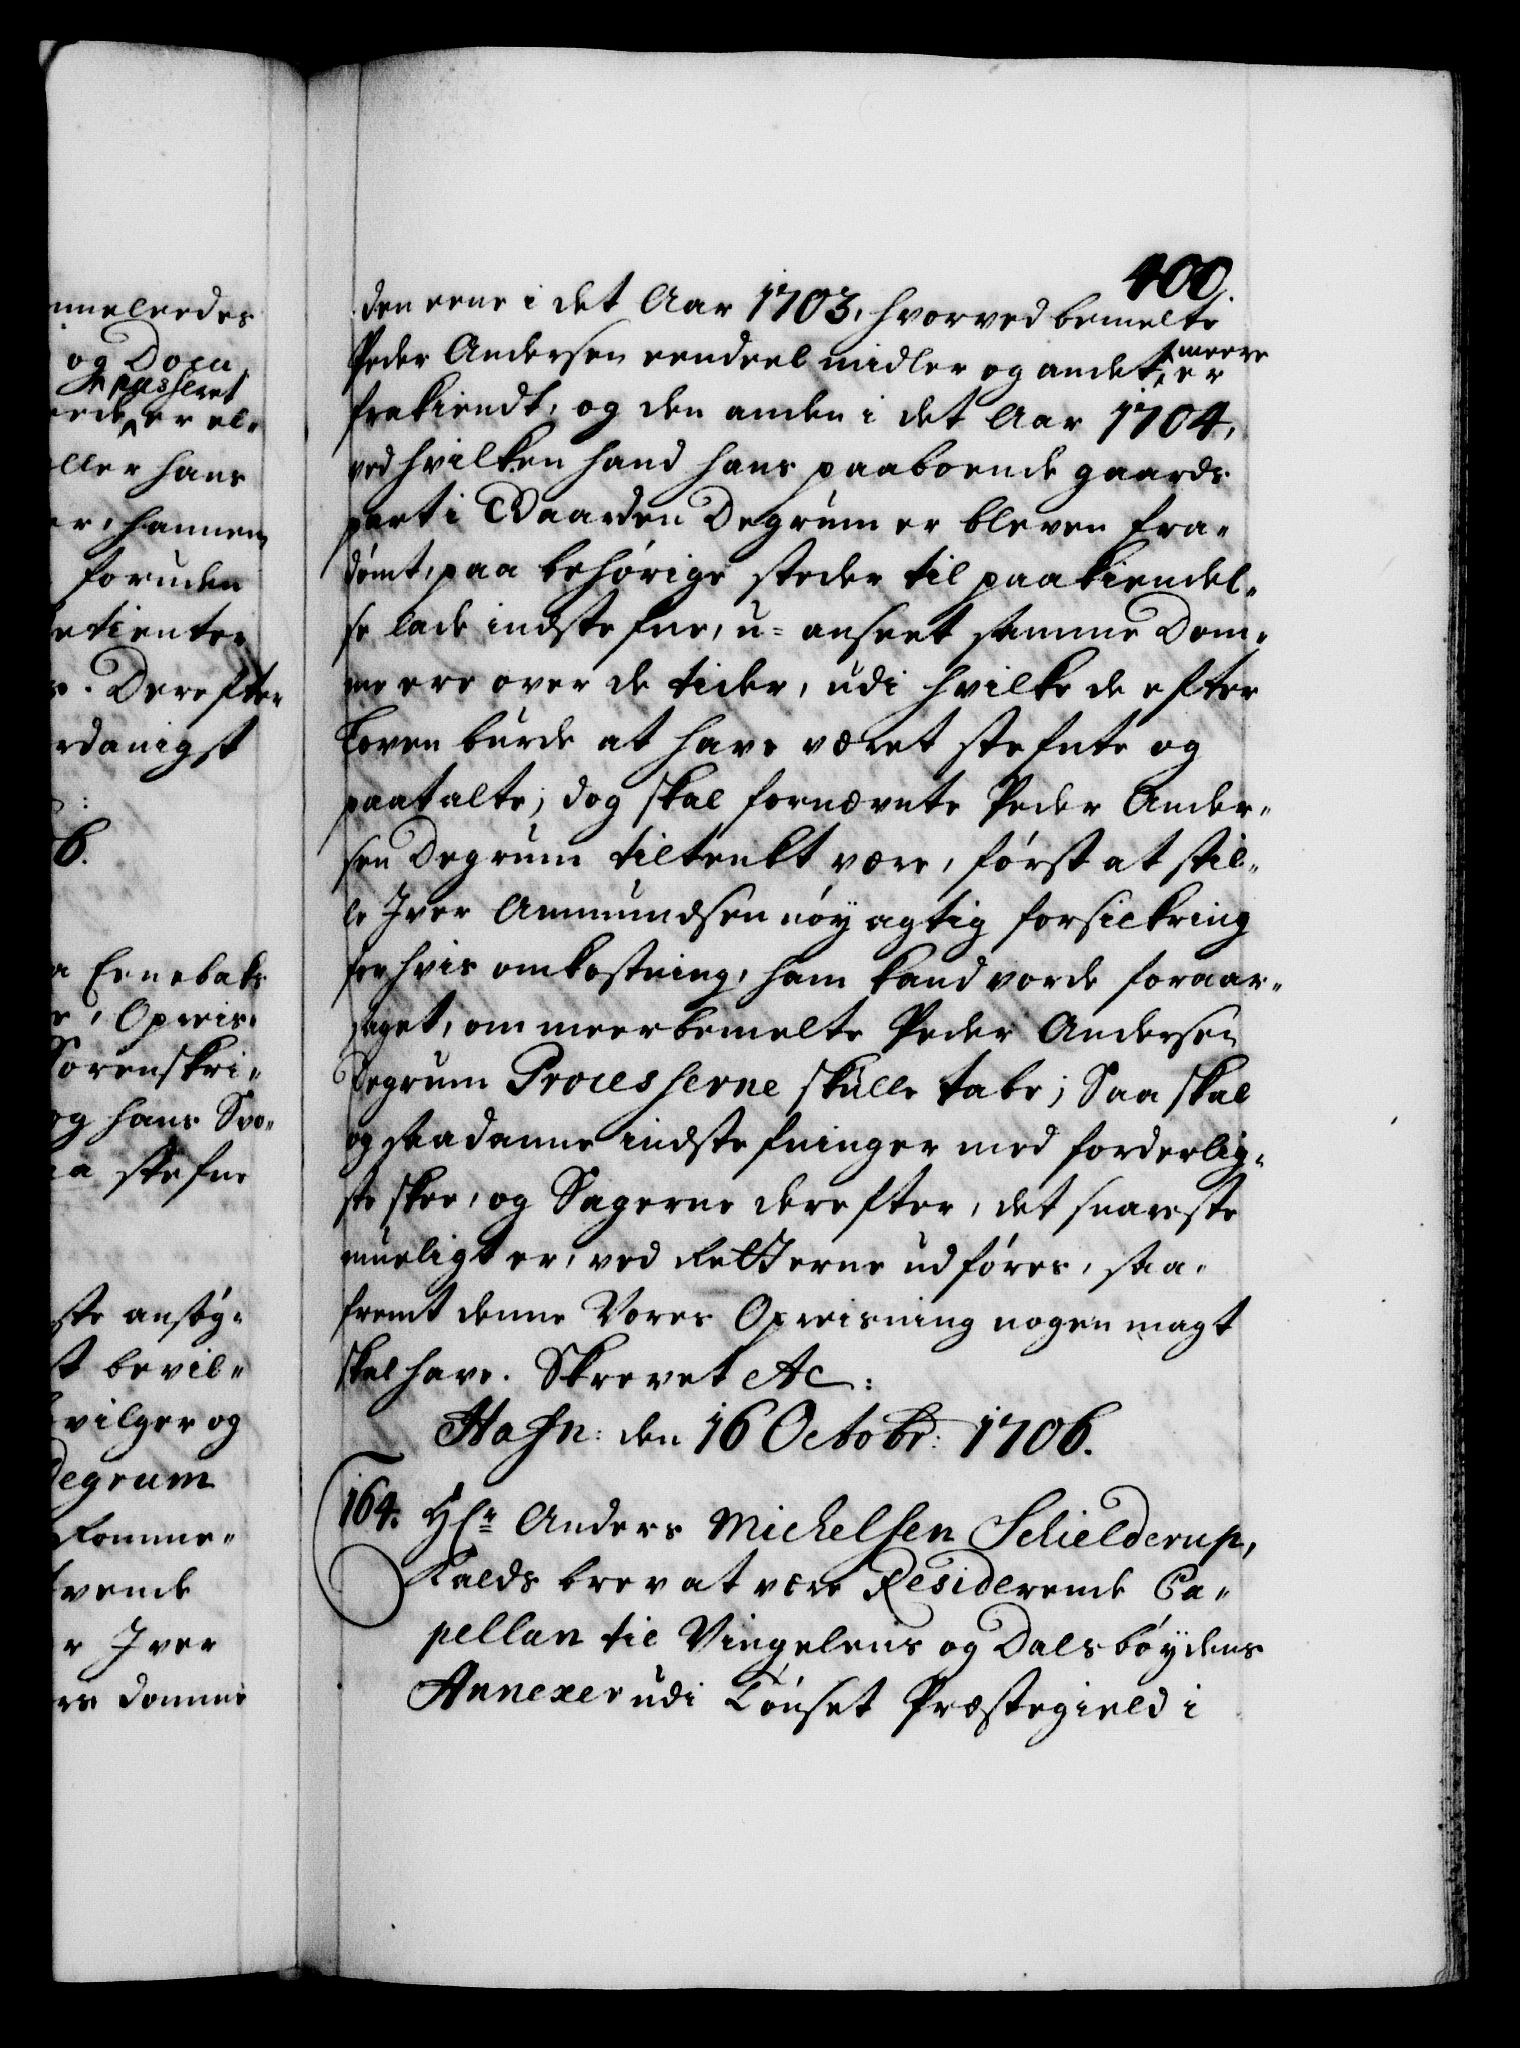 nneleedes
og Docu
passeret
eede er el-
ller hans
er, hannem
foruden
etienter
s. Derefter
rdanigst
6.
a Enebaks
e, Opreis-
Sorenskri-
og hans Svo-
aa stefne
ste ansøg-
t bevil-
vilger og
Degrum
komme-
tvende
r Iver
rs domme
400.
den eene i det Aar 1703, hvorved bemelte
Peder Andersen eendeel midler og andet meere er
frakiendt, og den anden i det Aar 1704,
ved hvilken hand hans paaboende gaards
part i Gaarden Degrum er bleven fra-
dømt, paa behørige steder til paakiendel-
se lade indstefne, u-anseet samme Dom-
me ere over de tider, udi hvilke de efter
Loven burde at have været stefnte og
paatalte; dog skal fornævnte Peder Ander-
sen Degrum tiltenkt være, først at stil-
le Iver Ammundsen nøyagtig forsickring
for hvis omkostning, ham kand vorde foraar-
saget, om meerbemelte Peder Andersen
Degrum Processerne skulle tabe; Saa skal
og saadanne indstefninger med forderlig-
ste skee, og Sagerne derefter, det snareste
mueligt er, ved Retterne udføres, saa-
fremt denne Vores Opreisning nogen magt
skal have. Skrevet Ac:
Hafn: den 16 Octobr: 1706.
164. Hr Anders Michelsen Schielderup,
Kalds brev at være Residerende Ca-
pellan til Vingelens og Dalsbøydens
Annexer udi Tønset Præstegield i